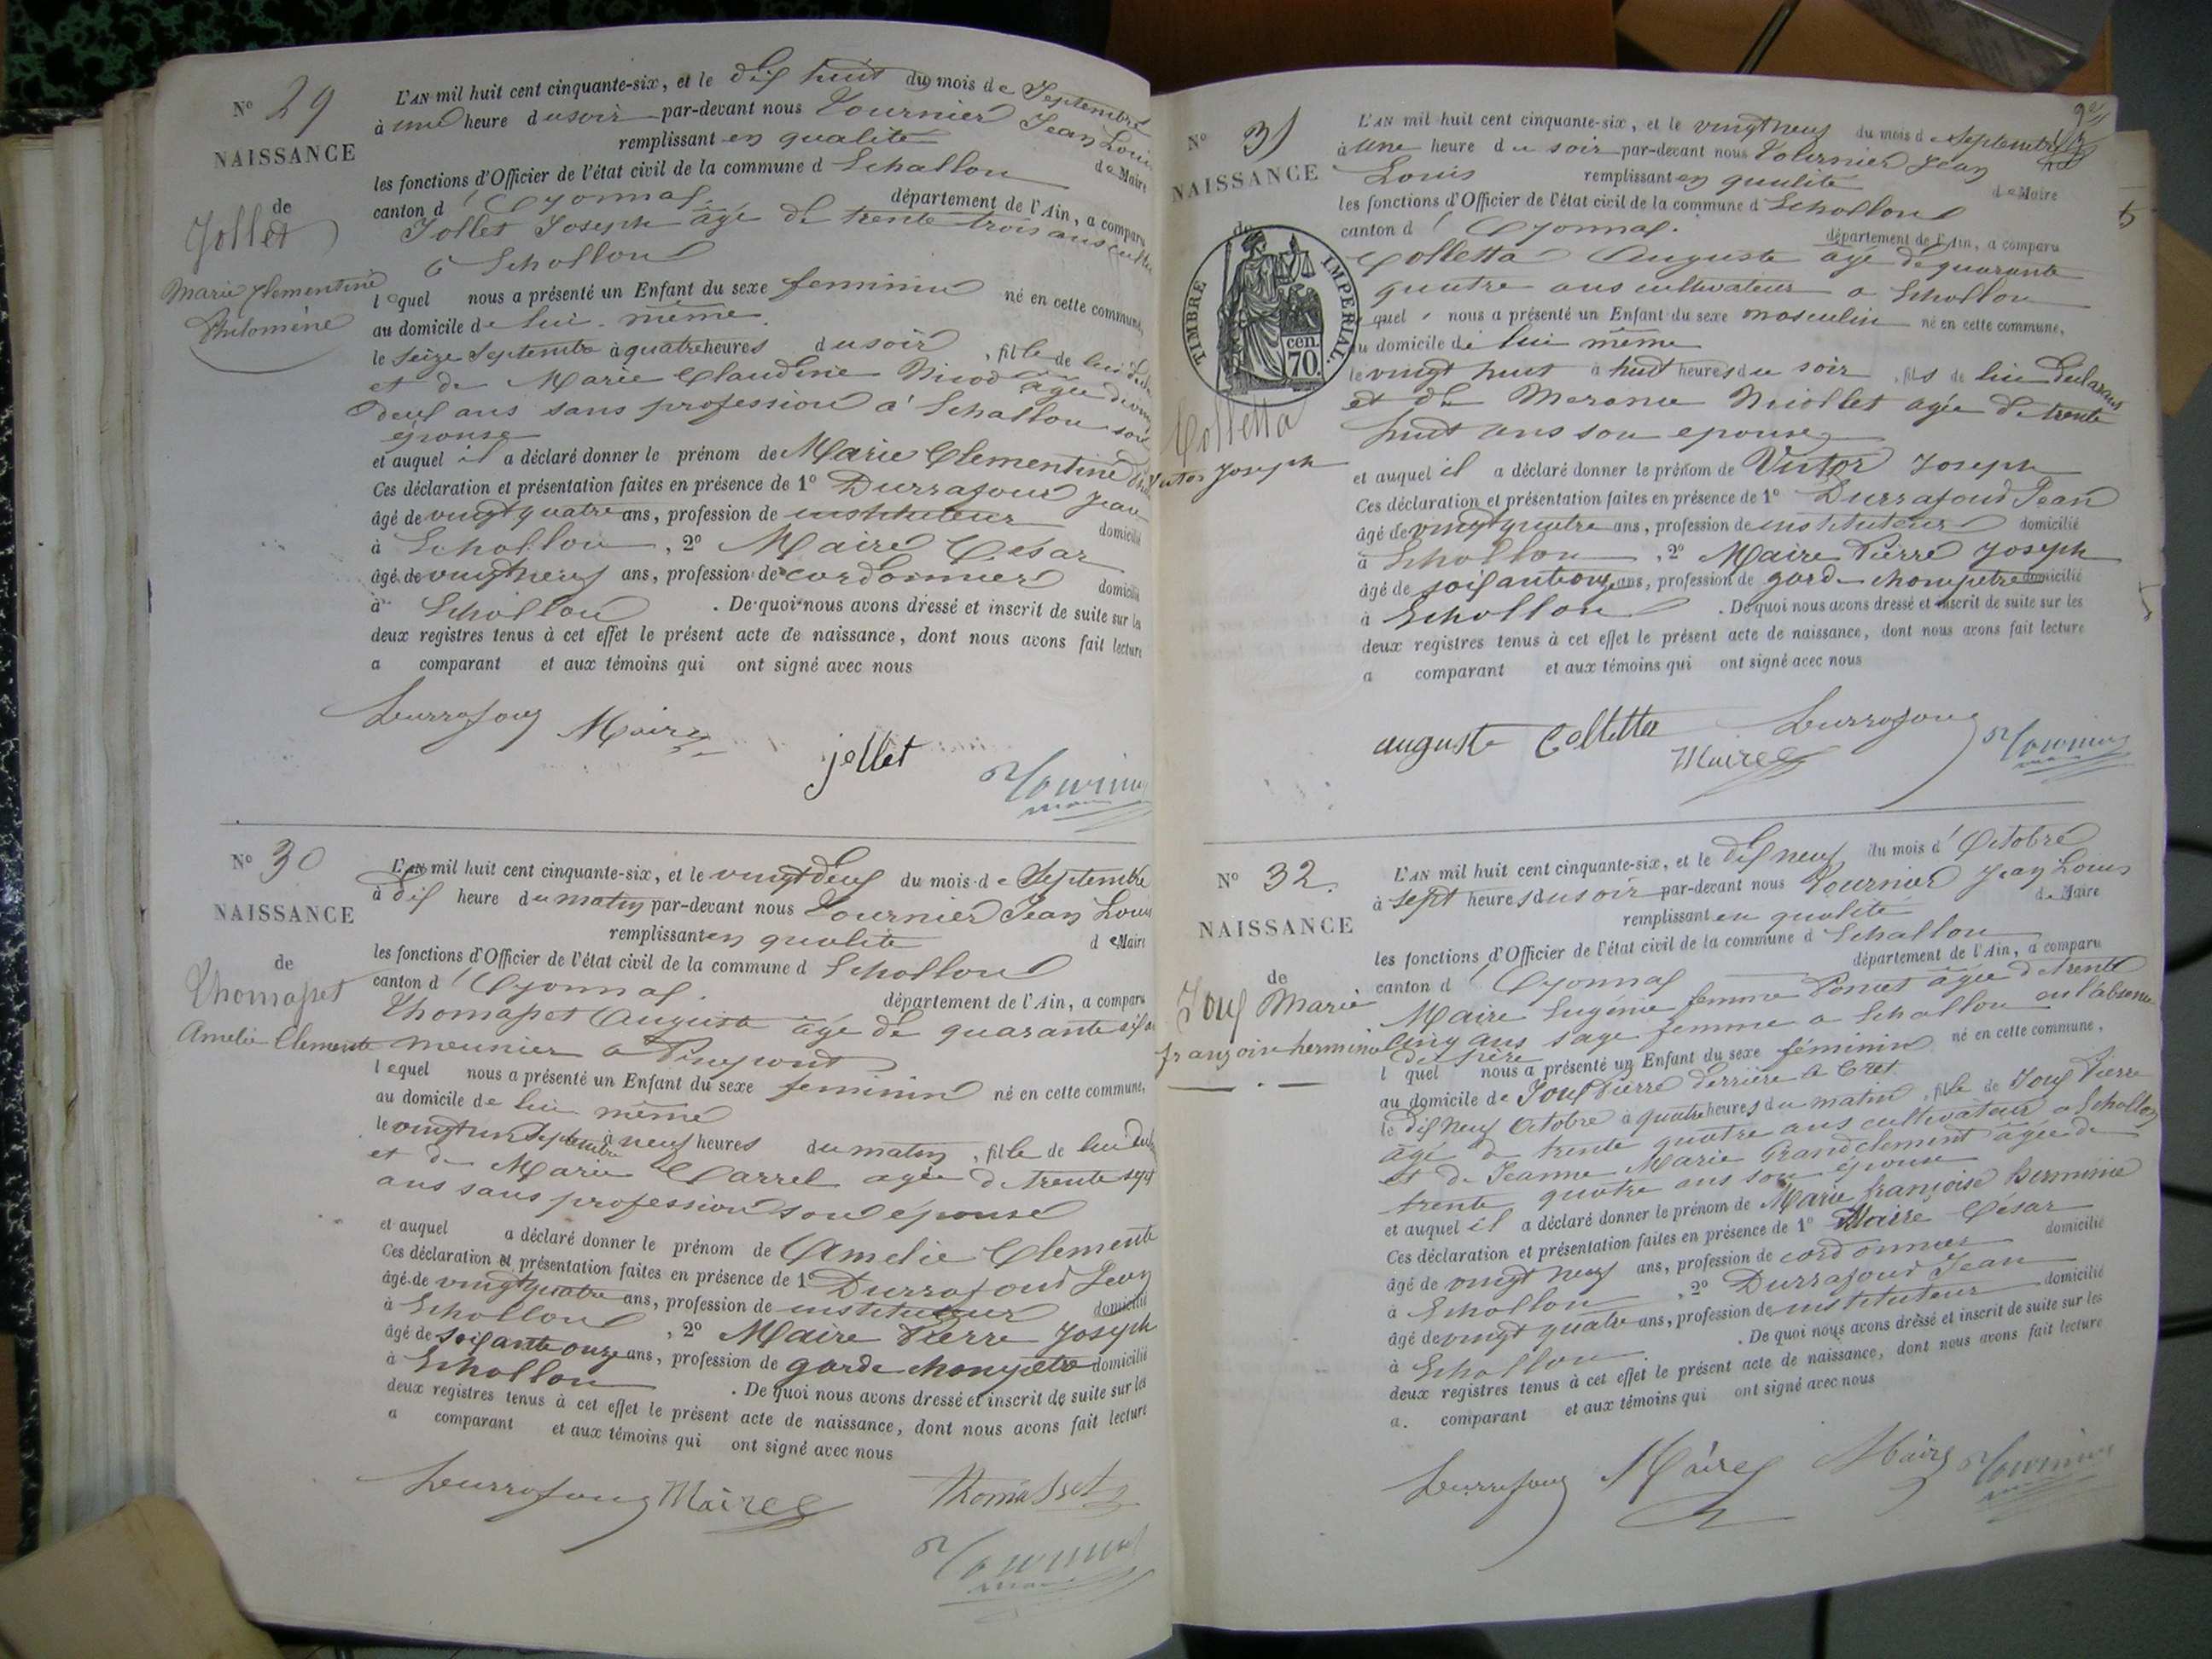 N° 29
NAISSANCE
de
Jollet
Marie Clementine
Philomène
L'AN mil huit cent cinquante-six, et le dix huit du mois de Septembre
à une heure du soir par-devant nous Tournier Jean Louis
remplissant en qualité de Maire
les fonctions d'Officier de l'état civil de la commune d Echallon
canton d' Oyonnax. département de l'Ain, a comparu
Jollet Joseph âgé de trente trois ans
à Echallon
lequel nous a présenté un Enfant du sexe feminin né en cette commune,
au domicile de lui même
le seize Septembre à quatre heures du soir, fille de lui
et de Marie Claudine Nicod âgée de
deux ans sans profession à Echallon son
épouse
et auquel il a déclaré donner le prénom de Marie Clementine
Ces déclaration et présentation faites en présence de 1° Durrafour Jean
âgé de vingt quatre ans, profession de instituteur domicilié
à Echallon, 2° Maire César
âgé de vingt neuf ans, profession de cordonnier domicilié
à Echallon. De quoi nous avons dressé et inscrit de suite sur les
deux registres tenus à cet effet le présent acte de naissance, dont nous avons fait lecture
a comparant et aux témoins qui ont signé avec nous
Durrafour Maire
jollet
Tournier
N° 30
NAISSANCE
de
Thomasset
Amelie Clemente
L'AN mil huit cent cinquante-six, et le vingt deux du mois de Septembre
à dix heure du matin par-devant nous Tournier Jean Louis
remplissant en qualité de Maire
les fonctions d'Officier de l'état civil de la commune d Echallon
canton d' Oyonnax. département de l'Ain, a comparu
Thomasset Auguste âgé de quarante six
meunier à
lequel nous a présenté un Enfant du sexe feminin né en cette commune,
au domicile de lui même
le vingt un Septembre à neuf heures du matin, fille de lui
et de Marie Carrel agée de trente sept
ans sans profession son épouse
et auquel a déclaré donner le prénom de Amelie Clemente
Ces déclaration et présentation faites en présence de 1° Durrafour Jean
âgé de vingt quatre ans, profession de instituteur domicilié
à Echallon, 2° Maire Pierre Joseph
âgé de soixante onze ans, profession de garde champêtre domicilié
à Echallon. De quoi nous avons dressé et inscrit de suite sur les
deux registres tenus à cet effet le présent acte de naissance, dont nous avons fait lecture
a comparant et aux témoins qui ont signé avec nous
Durrafour Maire Thomasset
Tournier
N° 31
NAISSANCE
de
TIMBRE IMPERIAL.
cen. 70.
Colletta
Victor Joseph
L'AN mil huit cent cinquante-six, et le vingt neuf du mois d Septembre
à une heure du soir par-devant nous Tournier Jean
Louis remplissant en qualité de Maire
les fonctions d'Officier de l'état civil de la commune d' Echallon
canton d' Oyonnax. département de l'Ain, a comparu
Colletta Auguste âgé de quarante
quatre ans cultivateur a Echallon
quel nous a présenté un Enfant du sexe masculin né en cette commune,
au domicile de lui même
le vingt huit à huit heures du soir, fils de lui Declarant
et de Nicollet agée de trente
huit ans son epouse
et auquel il a déclaré donner le prénom de Victor Joseph
Ces déclaration et présentation faites en présence de 1° Durrafour Jean
âgé de vingt quatre ans, profession de instituteur domicilié
à Echallon, 2° Maire Pierre Joseph
âgé de soixante onze ans, profession de garde champetre domicilié
à Echallon. De quoi nous avons dressé et inscrit de suite sur les
deux registres tenus à cet effet le présent acte de naissance, dont nous avons fait lecture
a comparant et aux témoins qui ont signé avec nous
auguste Colletta Durrafour
Maire Tournier
N° 32.
NAISSANCE
de
Joux Marie
françoise hermine
L'AN mil huit cent cinquante-six, et le dix neuf du mois d' Octobre
à sept heures du soir par-devant nous Tournier Jean Louis
remplissant en qualité de Maire
les fonctions d'Officier de l'état civil de la commune d Echallon
canton d' Oyonnax département de l'Ain, a comparu
Maire Eugénie femme Poncet âgée de trente
cinq ans sage femme a Echallon en l'absence
du père
l quel nous a présenté un Enfant du sexe féminin né en cette commune,
au domicile de Joux Pierre derrière le Cret
le dix neuf Octobre à quatre heures du matin, fille de Joux Pierre
âgé de trente quatre ans cultivateur a Echallon
et de Jeanne Marie Grandclement âgée de
trente quatre ans son épouse
et auquel il a déclaré donner le prénom de Marie françoise hermine
Ces déclaration et présentation faites en présence de 1° Maire César
âgé de vingt neuf ans, profession de cordonnier domicilié
à Echallon, 2° Durrafour Jean
âgé de vingt quatre ans, profession de instituteur domicilié
à Echallon. De quoi nous avons dressé et inscrit de suite sur les
deux registres tenus à cet effet le présent acte de naissance, dont nous avons fait lecture
a. comparant et aux témoins qui ont signé avec nous
Durrafour Maire Maire Tournier